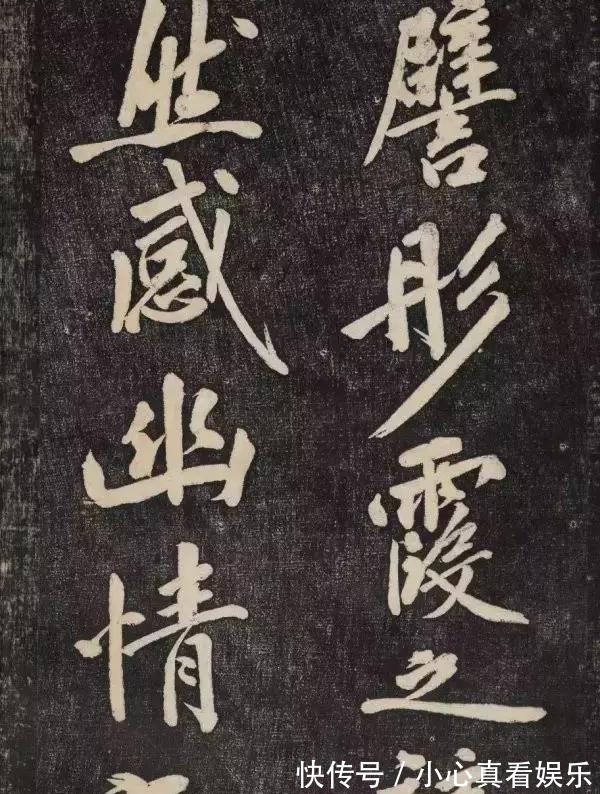 譬彤霞之
然感幽情
快传号/小心真看娱乐